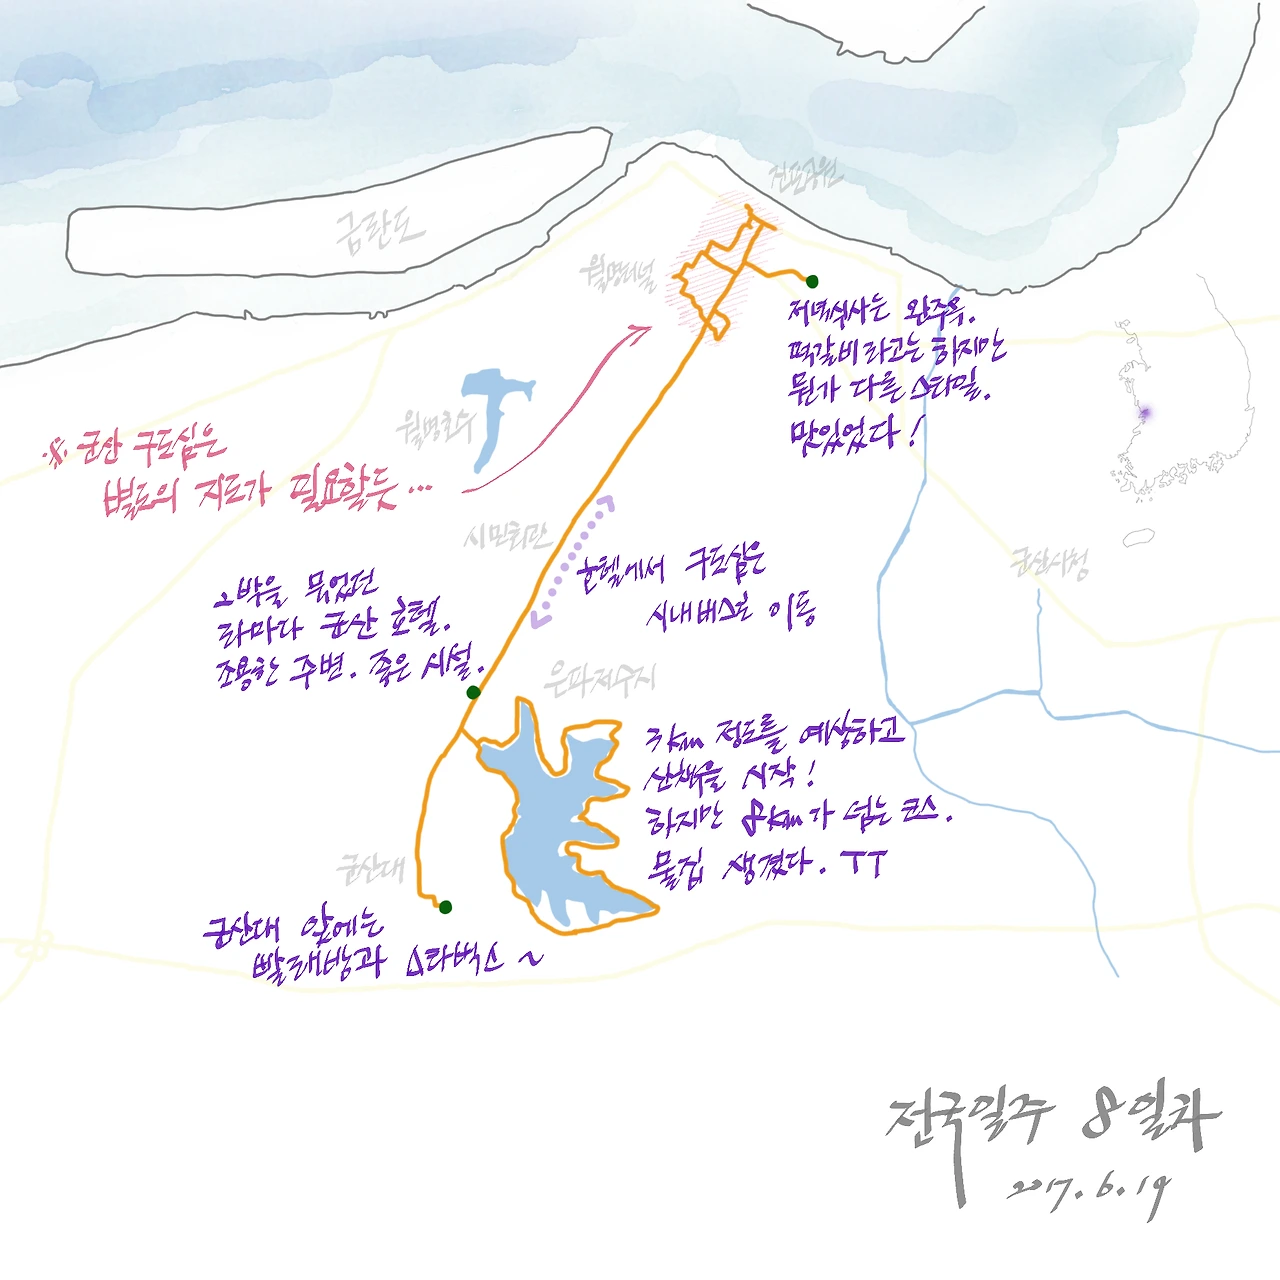 진포공원
금란도
월명터널
저녁식사는 완주옥.
떡갈비라고는 하지만
뭔가 다른 스타일.
맛있었다!
월명호수
※ 군산 구도심은
별도의 지도가 필요할듯...
시민회관
군산시청
호텔에서 구도심은
시내버스로 이동
2박을 묶었던
라마다 군산 호텔.
조용한 주변. 좋은 시설.
은파저수지
3km 정도를 예상하고
산책을 시작!
하지만 8km가 넘는 코스.
물집 생겼다. ㅜㅜ
군산대
군산대 앞에는
빨래방과 스타벅스~
전국일주 8일차
2017.6.19